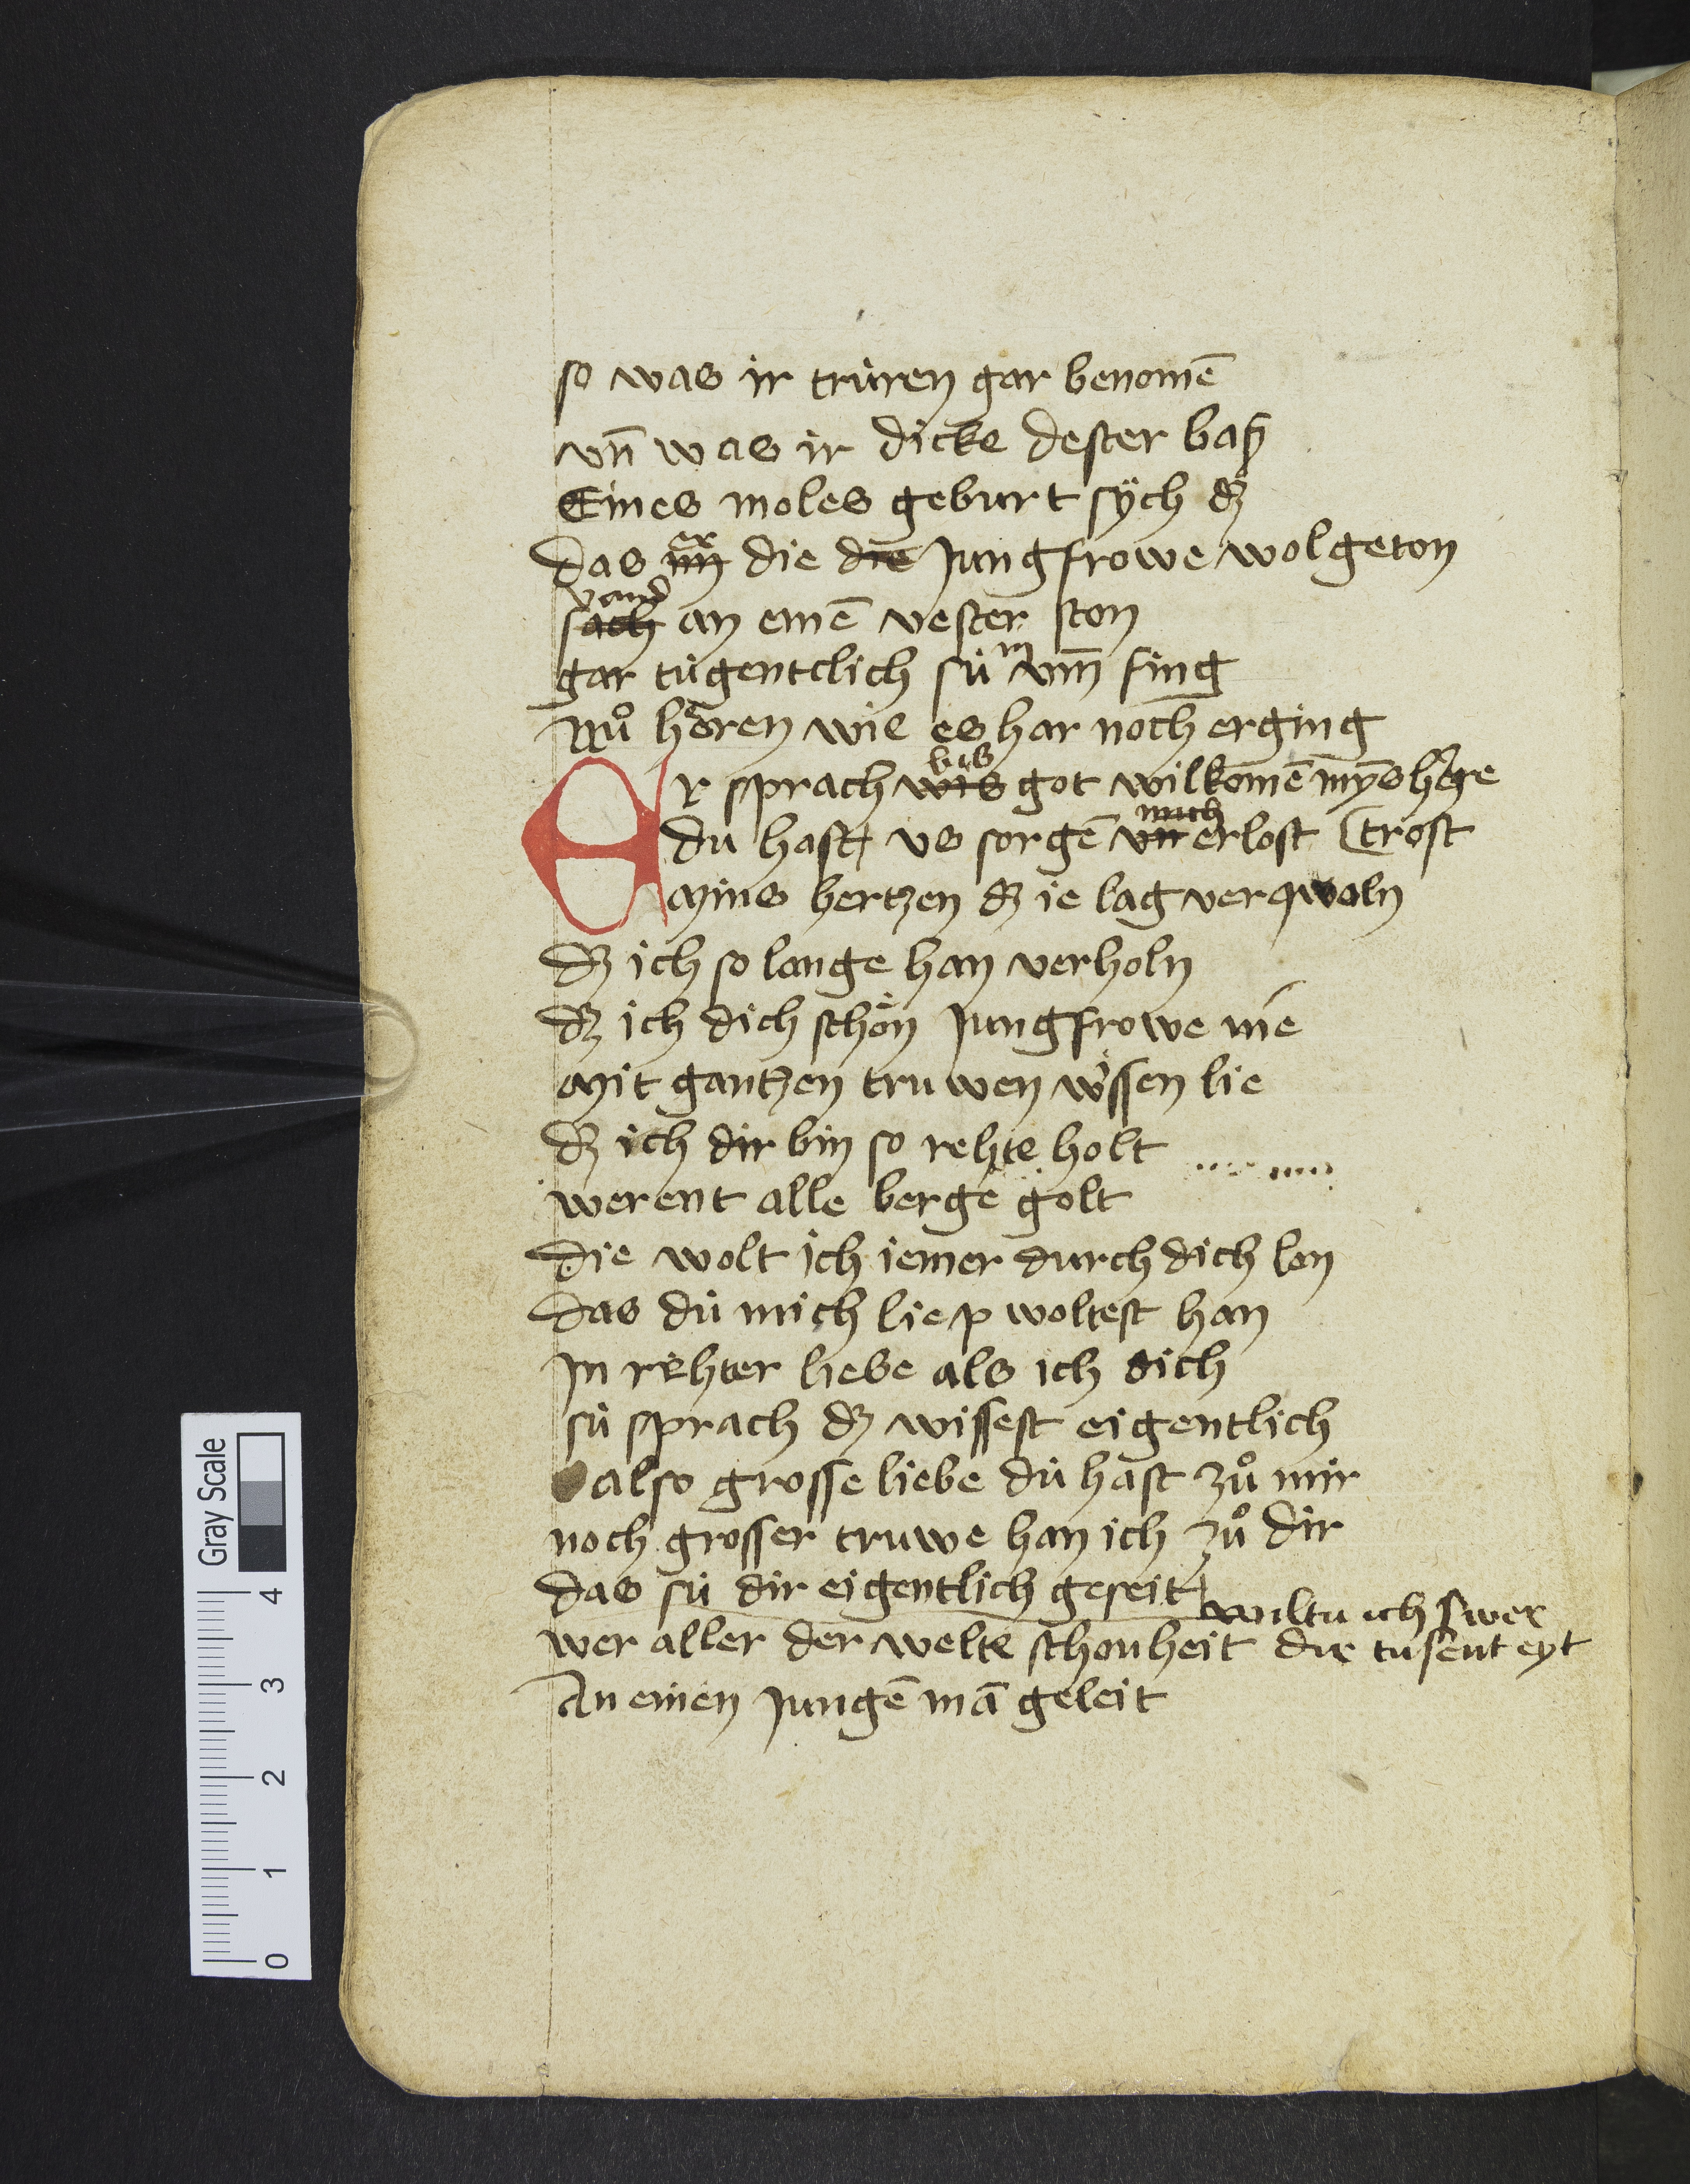 so was ir trùren gar benomē
vn̄ was ir dicke dester baß
Eines moles geburt sÿch dz
er
das im die die jungfrowe wolgeton
vand
sach an einē venster ston
gar tùgentclich sù in vm̄ fing
Nů hꝍren wie es har noch erging
bis
Er sprach wis got wilkomē myns herē
mich
du hast vs sorgē vn erlost (trost
Mins hertzen dz ie lag verqwoln
dz ich so lange han verholn
dz ich dich schön jungfrowe nie
Mit gantzen truwen wissen lie
dz ich dir bin so rehte holt
werent alle berge golt
die wolt ich iemer durch dich lon
das dù mich liep woltest han
In rehter liebe als ich dich
sù sprach dz wissest eigentlich
also grosse liebe dù hast zů mir
noch grosser truwe han ich zů dir
das sù dir eigentlich geseit
wiltu ich swer
wer aller der welte schonheit dir tusent eyt
An einen jungē mā geleit
Gray Scale
4
3
2
1
0